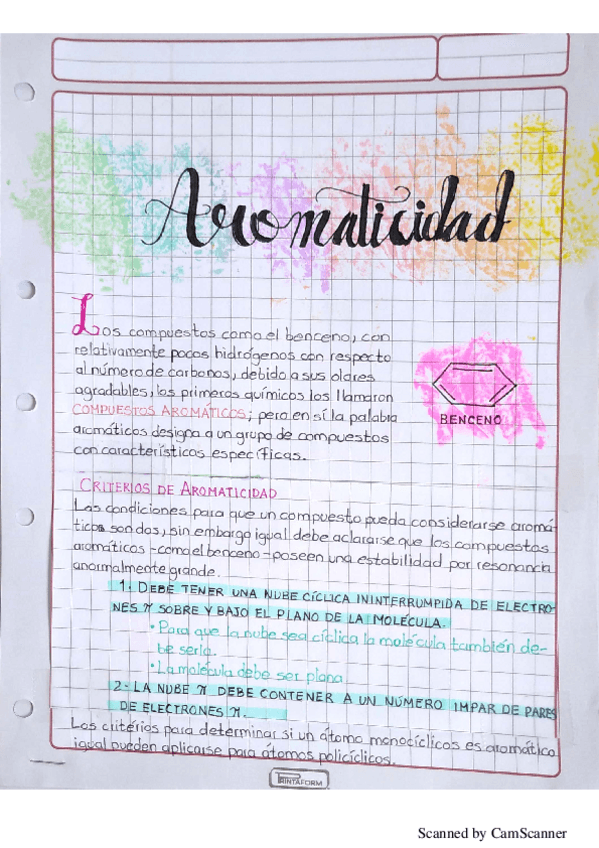 Aromaticidad
Los compuestos como el benceno, con
relativamente pocos hidrógenos con respecto
al número de carbonos, debido a sus olores
agradables, los primeros químicos los llamaron
COMPUESTOS AROMÁTICOS; pero en sí la palabra
aromáticos designa a un grupo de compuestos
con características específicas.
BENCENO
CRITERIOS DE AROMATICIDAD
Las condiciones para que un compuesto pueda considerarse aromá-
ticos son dos, sin embargo igual debe aclararse que los compuestos
aromáticos -como el benceno- poseen una estabilidad por resonancia
anormalmente grande.
1. DEBE TENER UNA NUBE CÍCLICA ININTERRUMPIDA DE ELECTRO-
NES π SOBRE Y BAJO EL PLANO DE LA MOLÉCULA.
• Para que la nube sea cíclica la molécula también de-
be serlo.
• La molécula debe ser plana.
2- LA NUBE π DEBE CONTENER A UN NÚMERO IMPAR DE PARES
DE ELECTRONES π.
Los critérios para determinar si un átomo monocíclicos es aromático
igual pueden aplicarse para átomos policíclicos.
PRINTAFORM
Scanned by CamScanner